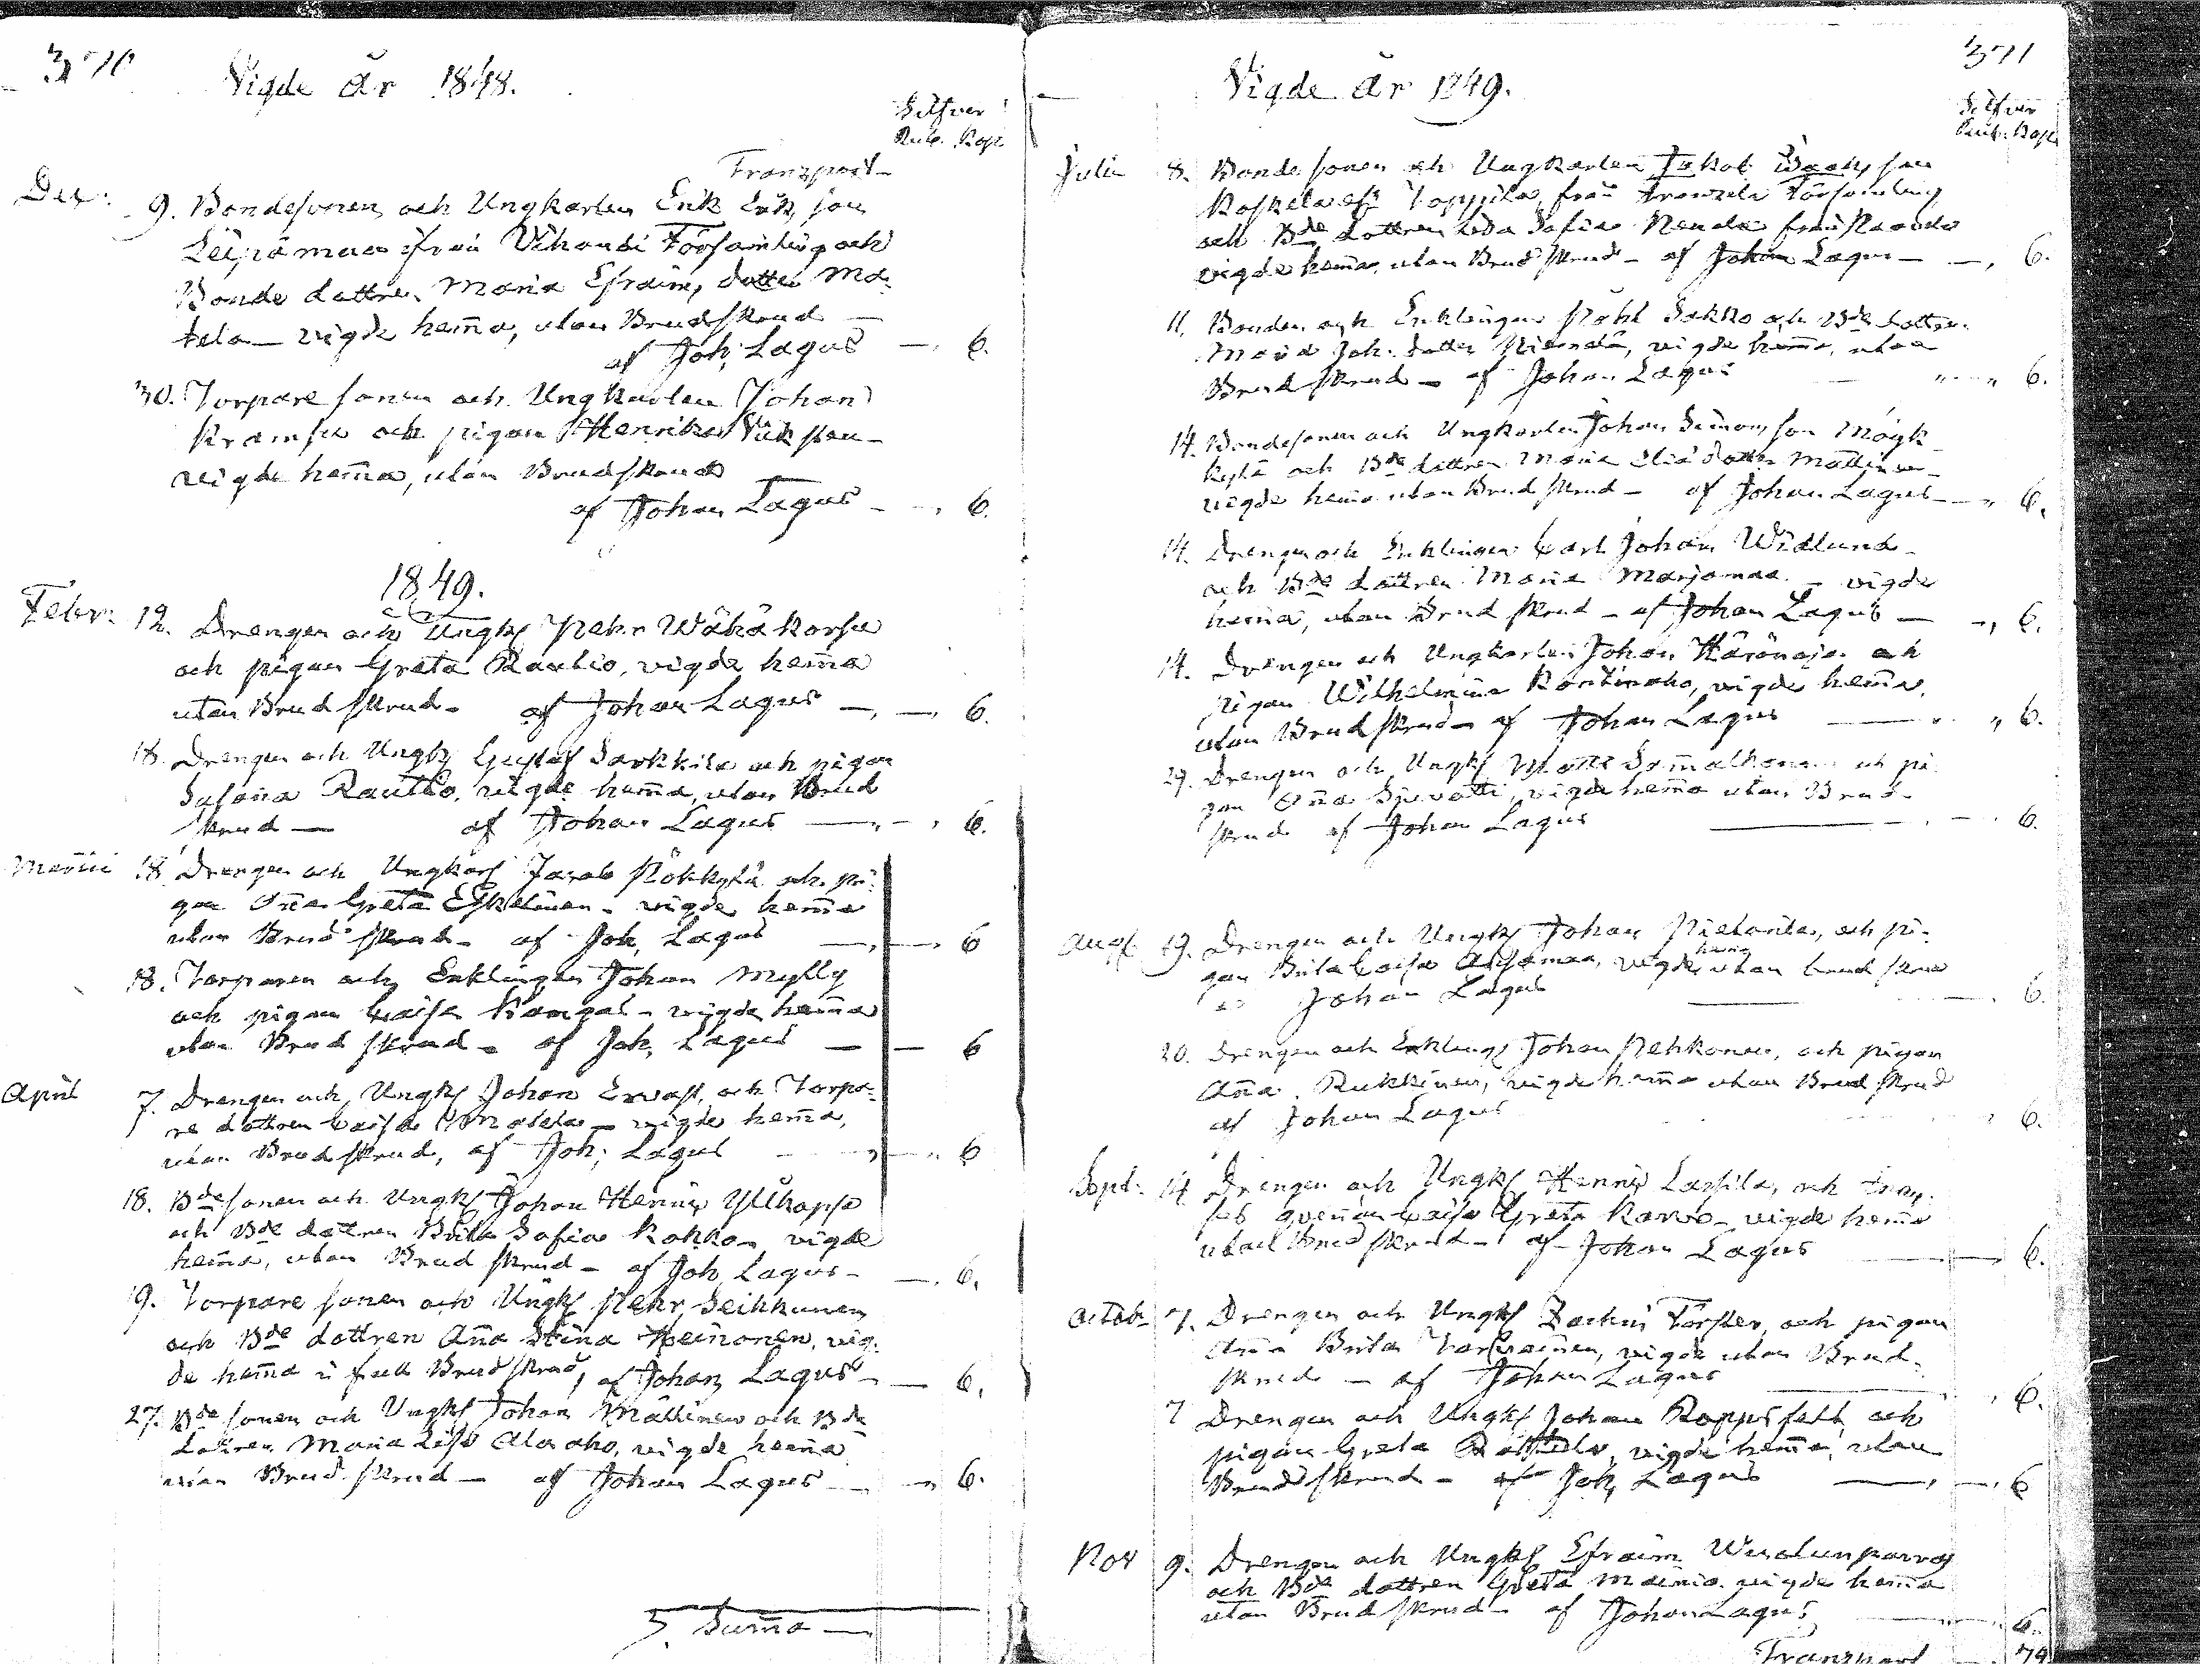 370
Vigde år 1848.
Silfver
Rub. Kop.
Transport
Dec: 9. Bondesonen och Ungkarlen Erik Eriksson
Leipämaa från Vihandi Församling och
Bonde dottren Maria Efraims dotter Ma-
tela vigde hem̄a, utan Brudskrud —
af Joh: Lagus — 6.
30. Torpare sonen och Ungkarlen Johan
Kramsu och pigan Henrika
vigde hem̄a, utan Brudskrud
af Johan Lagus — 6.
1849.
Febr: 12. Drengen och Ungk Pehr Wähäkorsu
och pigan Greta Rautio, vigde hem̄a
utan Brudskrud — af Johan Lagus — 6.
18. Drengen och Ungk Gustaf Sarkkila och pigan
Susan̄a Rautio, vigde hem̄a, utan Brud
skrud — af Johan Lagus — 6.
Martii 18. Drengen och Ungkarl Jacob Pökkylä och pi-
gan An̄a Greta Eskelinen — vigde hem̄a
utan Brudskrud — af Joh. Lagus — 6
18. Torparen och Enklingen Johan Mylly
och pigan Caisa Kangas — vigde hem̄a
utan Brudskrud — af Joh. Lagus — 6
April 7. Drengen och Ungk Johan Ervast, och Torpa-
re dottren Caisa Matela — vigde hem̄a,
utan Brudskrud, af Joh: Lagus — 6
18. Bde sonen och Ungk Johan Henric Ylikopsa
och Bde dottren Brita Sofia Kokko — vigde
hem̄a, utan Brudskrud — af Joh. Lagus — 6.
19. Torpare sonen och Ungk Pehr Seikkunen
och Bde dottren An̄a Stina Heinonen, vig-
de hem̄a i full Brudskrud, af Johan Lagus — 6.
27. Bde sonen och Ungk Johan Mattinen och Bde
dottren Maria Lisa Alaaho, vigde hem̄a
utan Brudskrud — af Johan Lagus — 6.
S. Sum̄a —
371
Vigde år 1849.
Silfver
Rub. Kop.
Julii 8. Bonde sonen och Ungkarlen Jakob son
Koskela Toppila, från Församling
och Bde dottren Lisa Sofia från
vigde hem̄a, utan Brudskrud — af Johan Lagus — 6.
11. Bonden och Enklingen Påhl Sakko och Bde dottren
Maria Joh. dotter vigde hem̄a, utan
Brudskrud — af Johan Lagus 6.
14. Bondesonen och Ungkarlen Johan Simonsson Mögk-
kylä och Bde dottren Maria Elias dotter Mattinen
vigde hem̄a utan Brudskrud — af Johan Lagus — 6.
14. Drengen och Enklingen Carl Johan Widlund
och Bde dottren Maria Marjomaa — vigde
hem̄a, utan Brudskrud — af Johan Lagus — 6.
14. Drengen och Ungkarlen Johan Häränoja och
pigan Wilhelmina Kontinaho, vigde hem̄a,
utan Brudskrud — af Johan Lagus — 6.
29. Drengen och Ungk Matts och pi-
gan An̄a vigde hem̄a utan Brud-
skrud af Johan Lagus — 6.
Aug. 19. Drengen och Ungk Johan Pietarila, och pi-
gan Brita Caisa vigde hem̄a utan brudskrud
af Johan Lagus — 6.
20. Drengen och Enkling Johan Pehkonen, och pigan
An̄a Rukkinen, vigde hem̄a utan Brudskrud
af Johan Lagus 6.
Sept: 14. Drengen och Ungk Henric Lassila, och
qven̄an Caisa Greta Karvo — vigde hem̄a
utan Brudskrud — af Johan Lagus — 6.
Octob. 7. Drengen och Ungk Zachris Förster, och pigan
An̄a Brita vigde utan Brud-
skrud — af Johan Lagus — 6.
7 Drengen och Ungk Johan Roppsfelt och
pigan Greta vigde hem̄a, utan
Brudskrud — af Joh. Lagus — 6
Nov 9. Drengen och Ungk Efraim
och Bde dottren Greta Mainio vigde hem̄a
utan Brudskrud — af Johan Lagus 6.
Transport